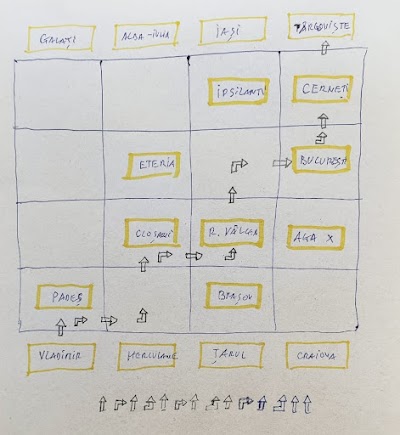 GALAȚI ALBA-IULIA IAȘI TÂRGOVIȘTE
IPSILANTI CERNEȚI
ETERIA BUCUREȘTI
CLOȘANI R. VÂLCEA AGA X
PADEȘ BRAȘOV
VLADIMIR HERCULANE ȚARUL CRAIOVA